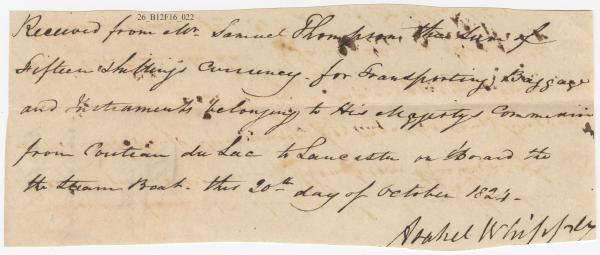 26_B12F16_022
Received from Mr. Samuel Thompson the Sum of
Fifteen Shillings Currency - for Transporting Baggage
and Instruments belonging to His Majestys Commission
from Couteau du Lac to Lancaster on Board the
the Steam Boat - this 20th day of October 1824 -
Asahel Whipple